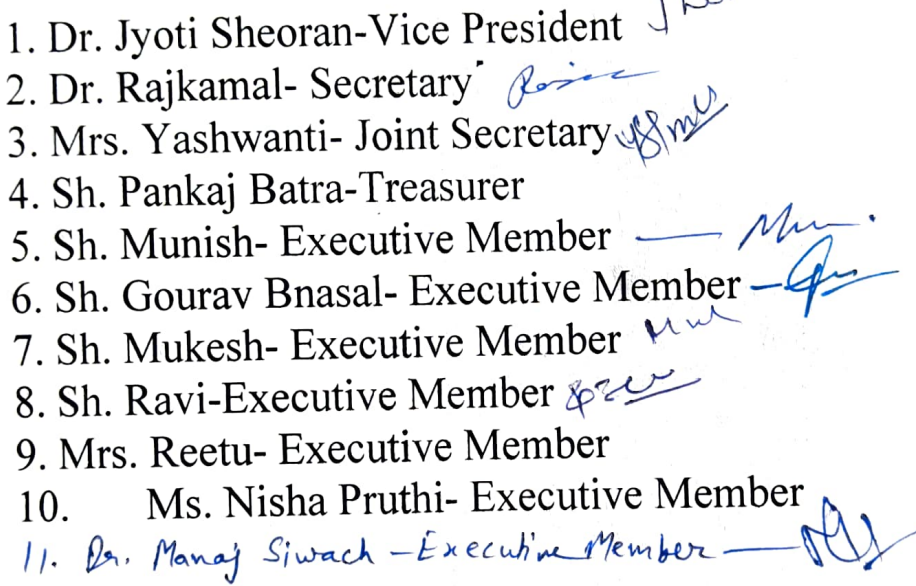 1. Dr. Jyoti Sheoran-Vice President
2. Dr. Rajkamal- Secretary
3. Mrs. Yashwanti- Joint Secretary
4. Sh. Pankaj Batra-Treasurer
5. Sh. Munish- Executive Member
6. Sh. Gourav Bnasal- Executive Member
7. Sh. Mukesh- Executive Member
8. Sh. Ravi-Executive Member
9. Mrs. Reetu- Executive Member
10. Ms. Nisha Pruthi- Executive Member
11. Dr. Manoj Siwach - Executive Member